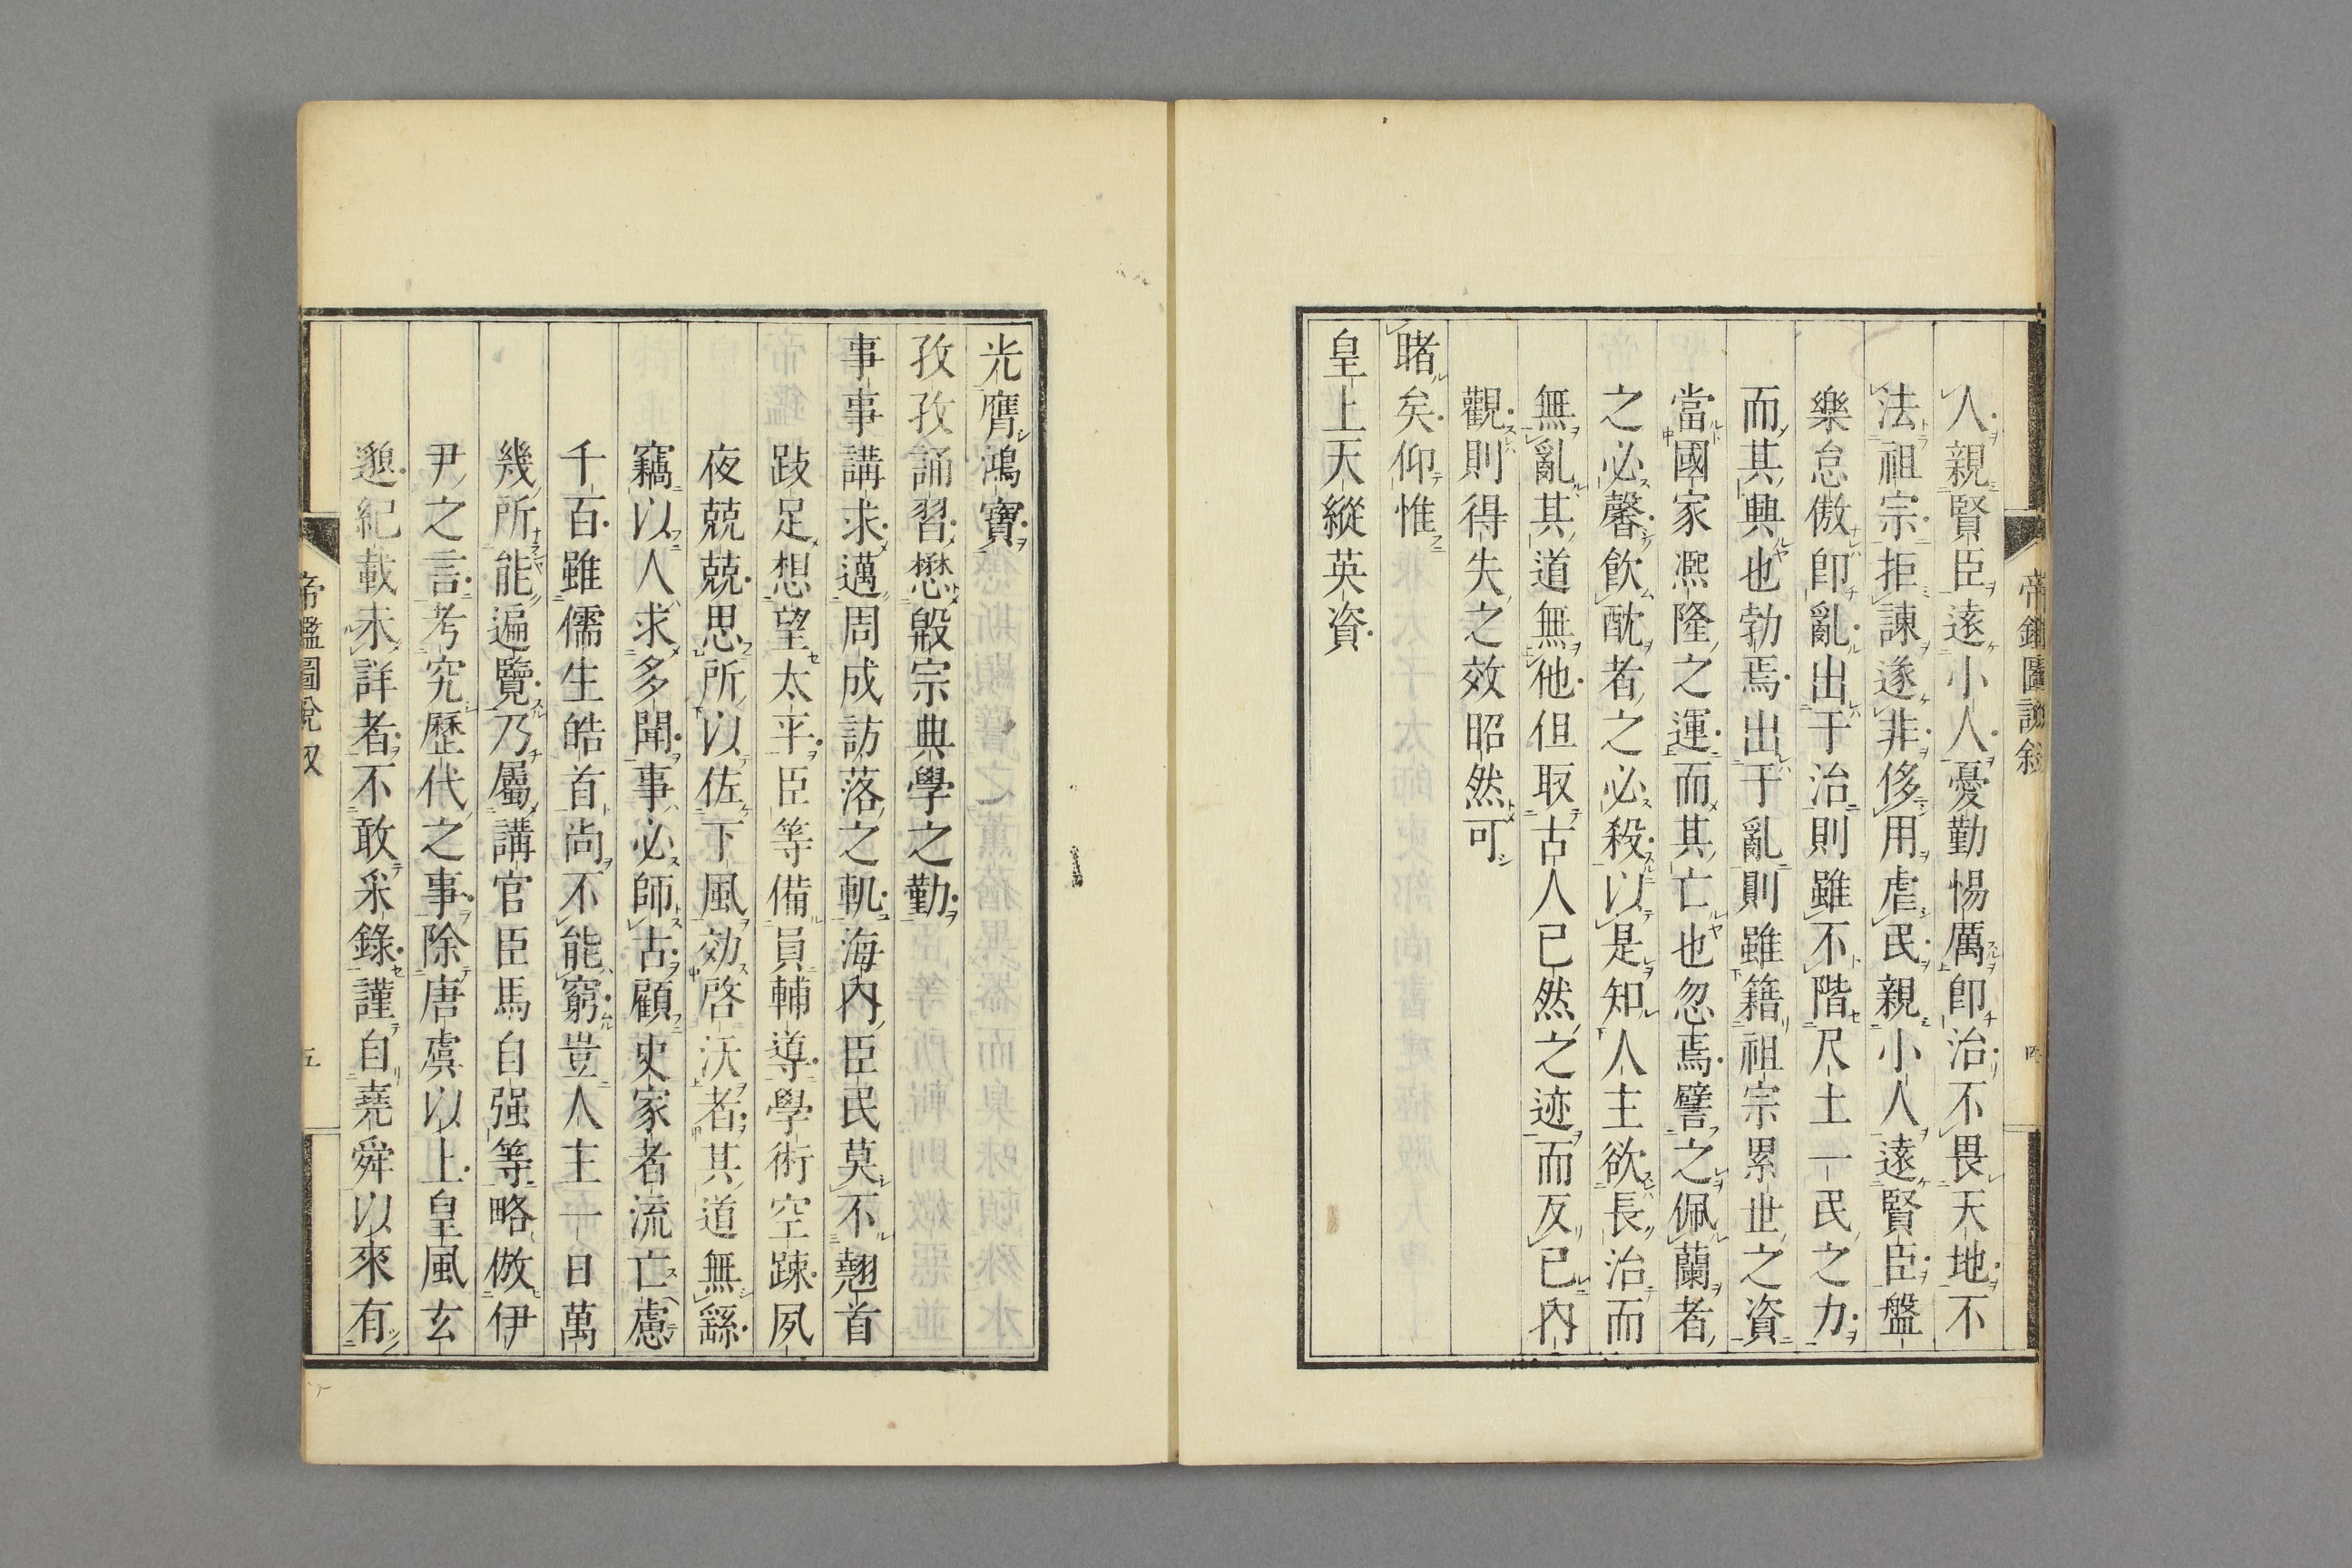 帝鑑圖說敘
四
人親賢臣遠小人憂勤惕厲卽治不畏天地不
法祖宗拒諫遂非侈用虐民親小人遠賢臣盤
樂怠傲卽亂出于治則雖不階尺土一民之力
而其興也勃焉出于亂則雖籍祖宗累世之資
當國家熈隆之運而其亡也忽焉譬之佩蘭者
之必馨飮酖者之必殺以是知人主欲長治而
無亂其道無他但取古人已然之迹而反已內
觀則得失之效昭然可
睹矣仰惟
皇上天縱英資
光膺鴻寶
孜孜誦習懋殷宗典學之勤
事事講求邁周成訪落之軌海內臣民莫不翹首
跂足想望太平臣等備員輔導學術空踈夙
夜兢兢思所以佐下風効啓沃者其道無繇
竊以人求多聞事必師古顧史家者流亡慮
千百雖儒生皓首尚不能窮豈人主一日萬
幾所能遍覽乃屬講官臣馬自强等略倣伊
尹之言考究歷代之事除唐虞以上皇風玄
邈紀載未詳者不敢采錄謹自堯舜以來有
帝鑑圖說敘
五